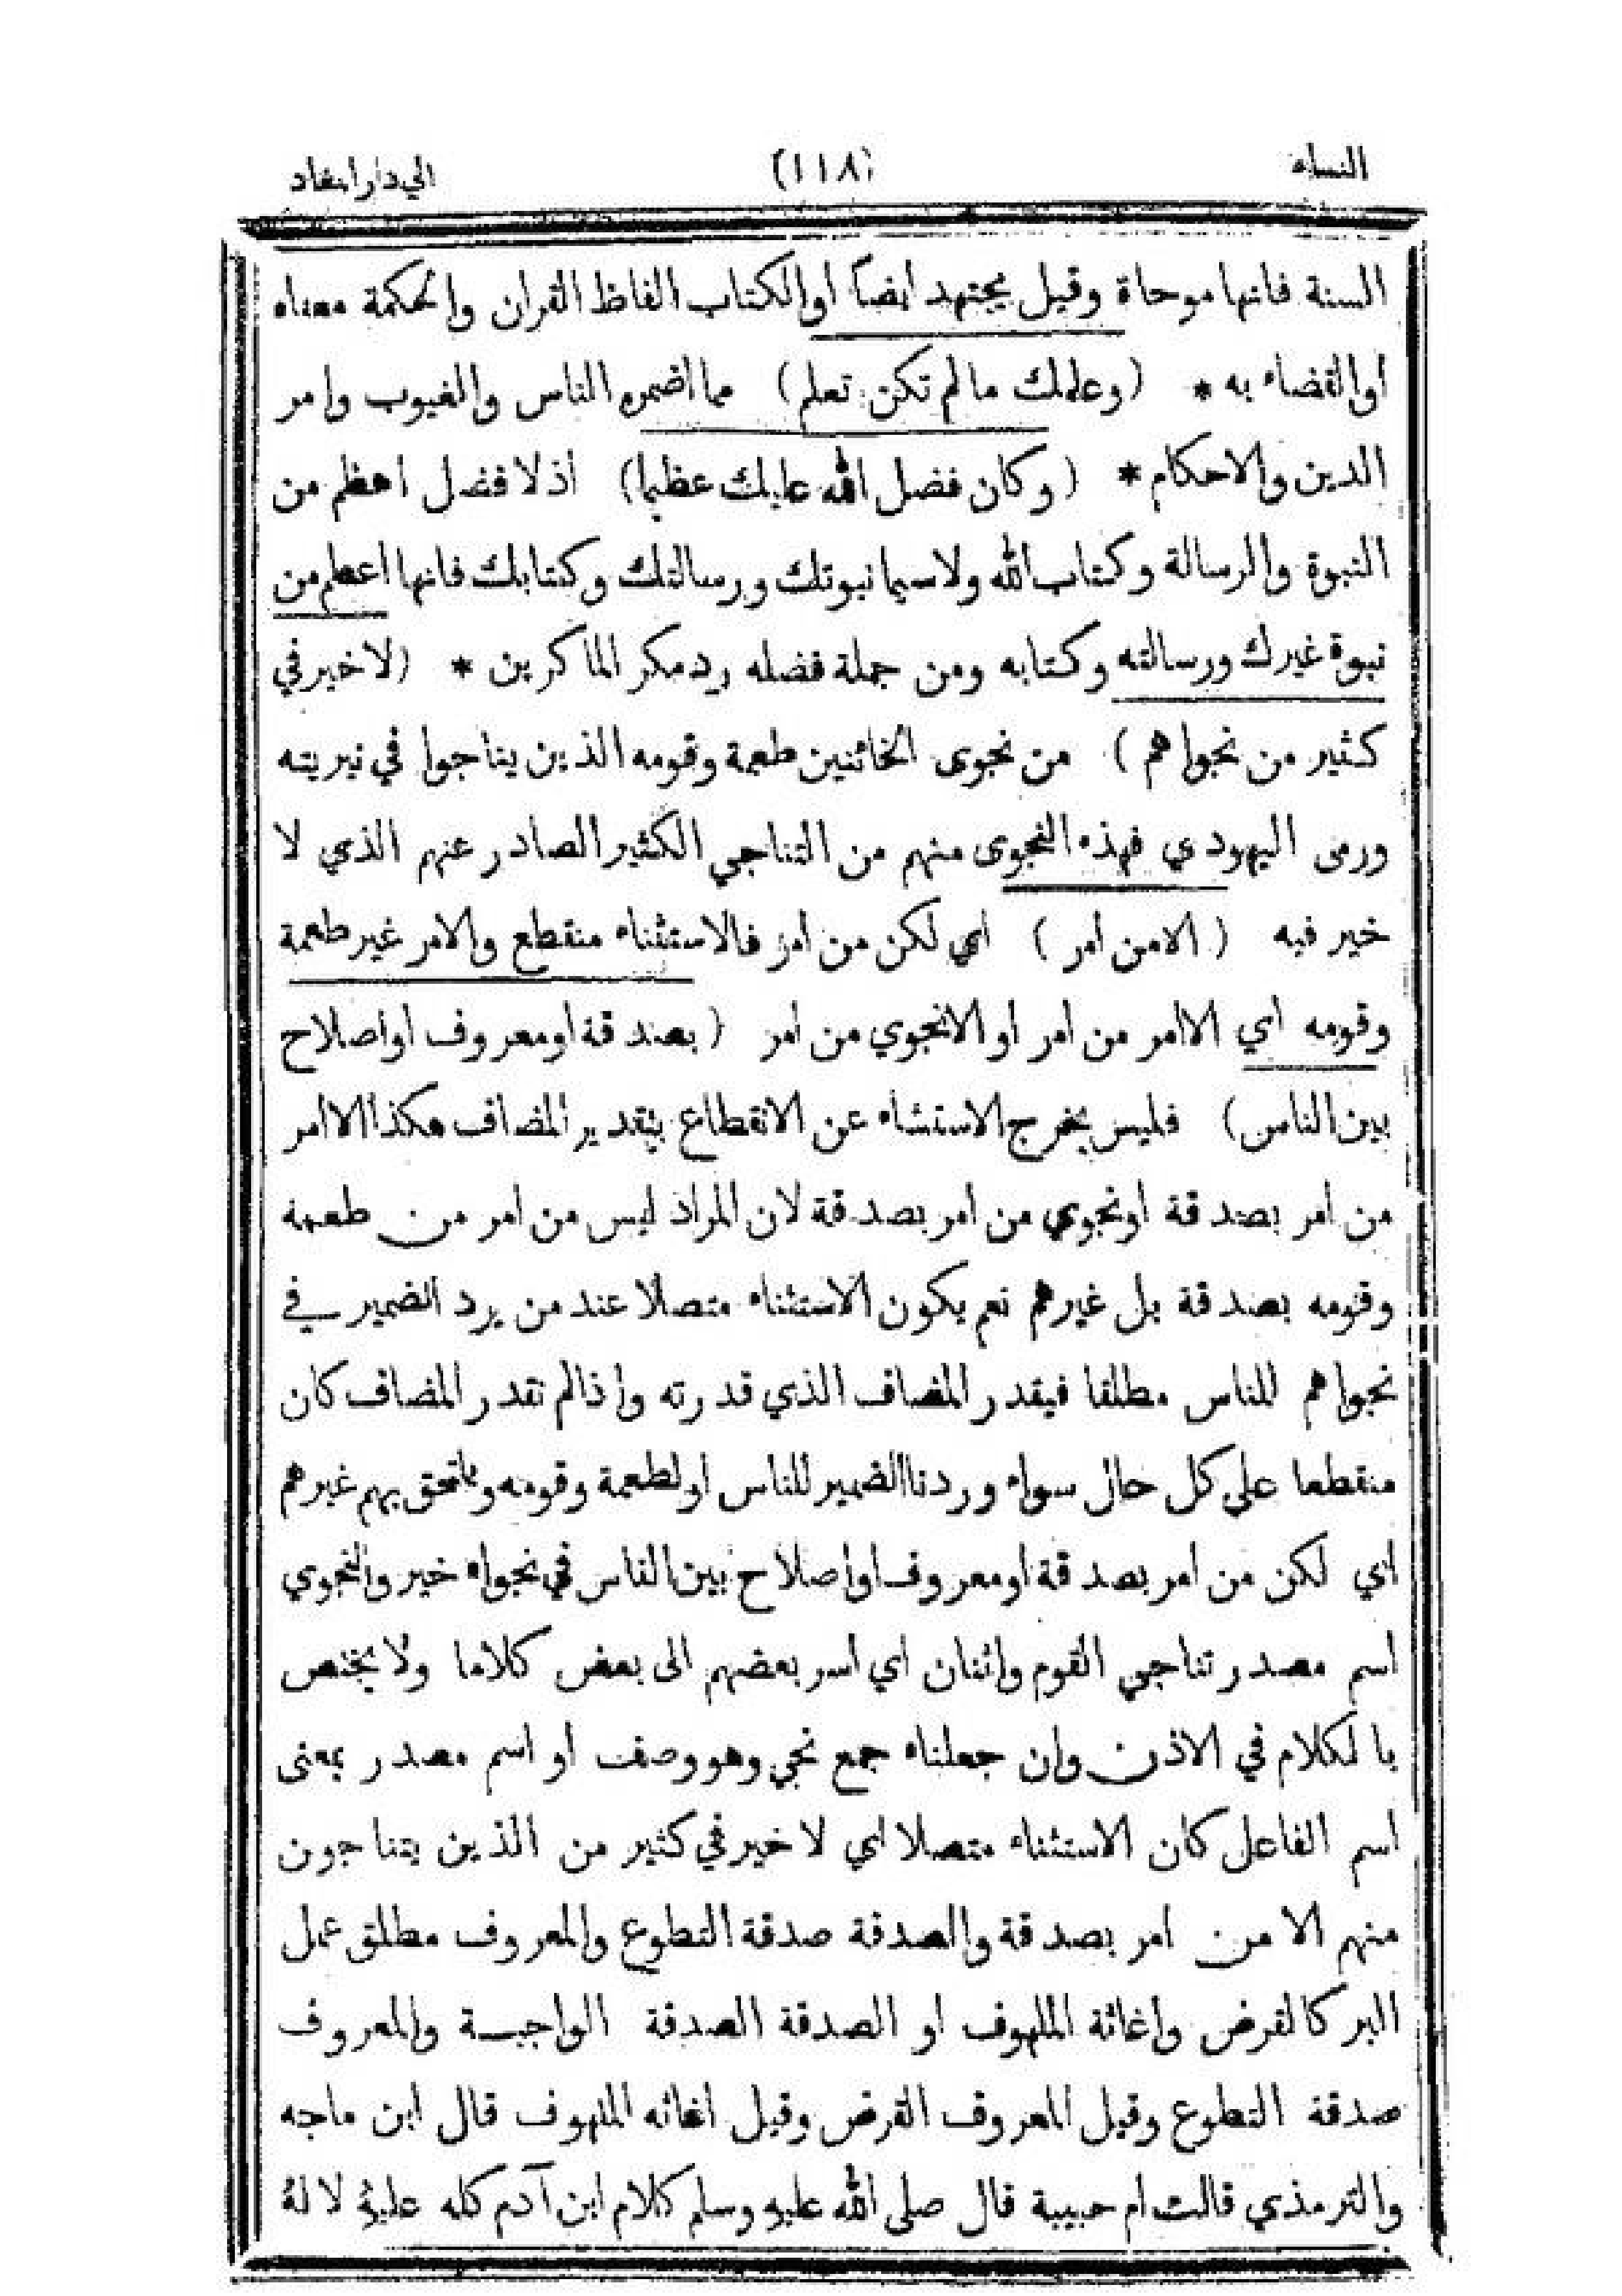 النساء (١١٨) الي دار المعاد
السنة فانها موحاة وقيل يجتهد ايضا او الكتاب الفاظ القران والحكمة معناه
او القضاء به * (وعلمك ما لم تكن تعلم) مما اضمره الناس والغيوب وامر
الدين والاحكام * (وكان فضل الله عليك عظيما) اذ لا فضل اعظم من
النبوة والرسالة وكتاب الله ولا سيما نبوتك ورسالتك وكتابك فانها اعظم من
نبوة غيرك ورسالته وكتابه ومن جملة فضله رد مكر الماكرين * (لا خير في
كثير من نجواهم) من نجوى الخائنين طعمة وقومه الذين يناجوا في تبريته
ورمى اليهودي فهذه النجوى منهم من التناجي الكثير الصادر عنهم الذي لا
خير فيه (الا من امر) اي لكن من امر فالاستثناء منقطع والامر غير طعمة
وقومه اي الا امر من امر او الا نجوي من امر (بصدقة او معروف او اصلاح
بين الناس) فليس يخرج الاستثناء عن الانقطاع بتقدير المضاف هكذا الا امر
من امر بصدقة او نجوي من امر بصدقة لان المراد ليس من امر من طعمة
وقومه بصدقة بل غيرهم نعم يكون الاستثناء متصلا عند من يرد الضمير في
نجواهم للناس مطلقا فيقدر المضاف الذي قدرته واذا لم تقدر المضاف كان
منقطعا على كل حال سواء وردنا الضمير للناس او لطعمة وقومه ويلتحق بهم غيرهم
اي لكن من امر بصدقة او معروف او اصلاح بين الناس في نجواه خير والنجوي
اسم مصدر تناجي القوم واثنان اي اسر بعضهم الى بعض كلاما ولا يختص
بالكلام في الاذن وان جعلناه جمع نجي وهو وصف او اسم مصدر بمعنى
اسم الفاعل كان الاستثناء متصلا اي لا خير في كثير من الذين يتناجون
منهم الا من امر بصدقة والصدقة صدقة التطوع والمعروف مطلق عمل
البر كالقرض واغاثة الملهوف او الصدقة الصدقة الواجبة والمعروف
صدقة التطوع وقيل المعروف القرض وقيل اغاثه الملهوف قال ابن ماجه
والترمذي قالت ام حبيبة قال صلى الله عليه وسلم كلام ابن آدم كله عليهِ لا لهُ